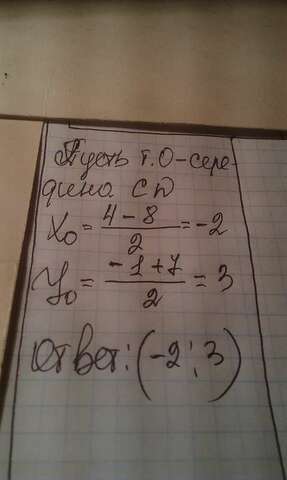 Пусть т. О-сере-
дина CD
X₀ = (4 - 8)/2 = -2
Y₀ = (-1 + 7)/2 = 3
Ответ: (-2; 3)